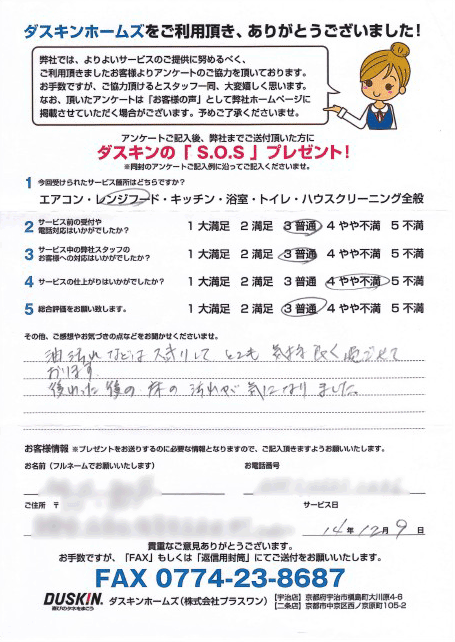 ダスキンホームズをご利用頂き、ありがとうございました!
弊社では、よりよいサービスのご提供に努めるべく、
ご利用頂きましたお客様よりアンケートのご協力を頂いております。
お手数ですが、ご協力頂けるとスタッフ一同、大変嬉しく思います。
なお、頂いたアンケートは「お客様の声」として弊社ホームページに
掲載させていただく場合がございます。予めご了承くださいませ。
アンケートご記入後、弊社までご送付頂いた方に
ダスキンの「S.O.S」プレゼント!
※同封のアンケートご記入例に沿ってご記入くださいませ。
1 今回受けられたサービス箇所はどちらですか?
エアコン・レンジフード・キッチン・浴室・トイレ・ハウスクリーニング全般
2 サービス前の受付や
電話対応はいかがでしたか? 1 大満足 2 満足 3 普通 4 やや不満 5 不満
3 サービス中の弊社スタッフの
お客様への対応はいかがでしたか? 1 大満足 2 満足 3 普通 4 やや不満 5 不満
4 サービスの仕上がりはいかがでしたか? 1 大満足 2 満足 3 普通 4 やや不満 5 不満
5 総合評価をお願い致します。 1 大満足 2 満足 3 普通 4 やや不満 5 不満
その他、ご感想やお気づきの点などをお聞かせくださいませ。
油汚れなどはスッキリして とても 気持良く過ごせて
おります。
後の床の汚れが気になりました。
お客様情報 ※プレゼントをお送りするのに必要な情報となりますので、ご記入頂きますようお願いいたします。
お名前(フルネームでお願いいたします) お電話番号
ご住所 〒 サービス日
14年12月9日
貴重なご意見ありがとうございます。
お手数ですが、「FAX」もしくは「返信用封筒」にてご送付をお願いいたします。
FAX 0774-23-8687
DUSKIN 喜びのタネをまこう ダスキンホームズ(株式会社プラスワン) 【宇治店】京都府宇治市槇島町大川原4-6
【二条店】京都市中京区西ノ京原町105-2